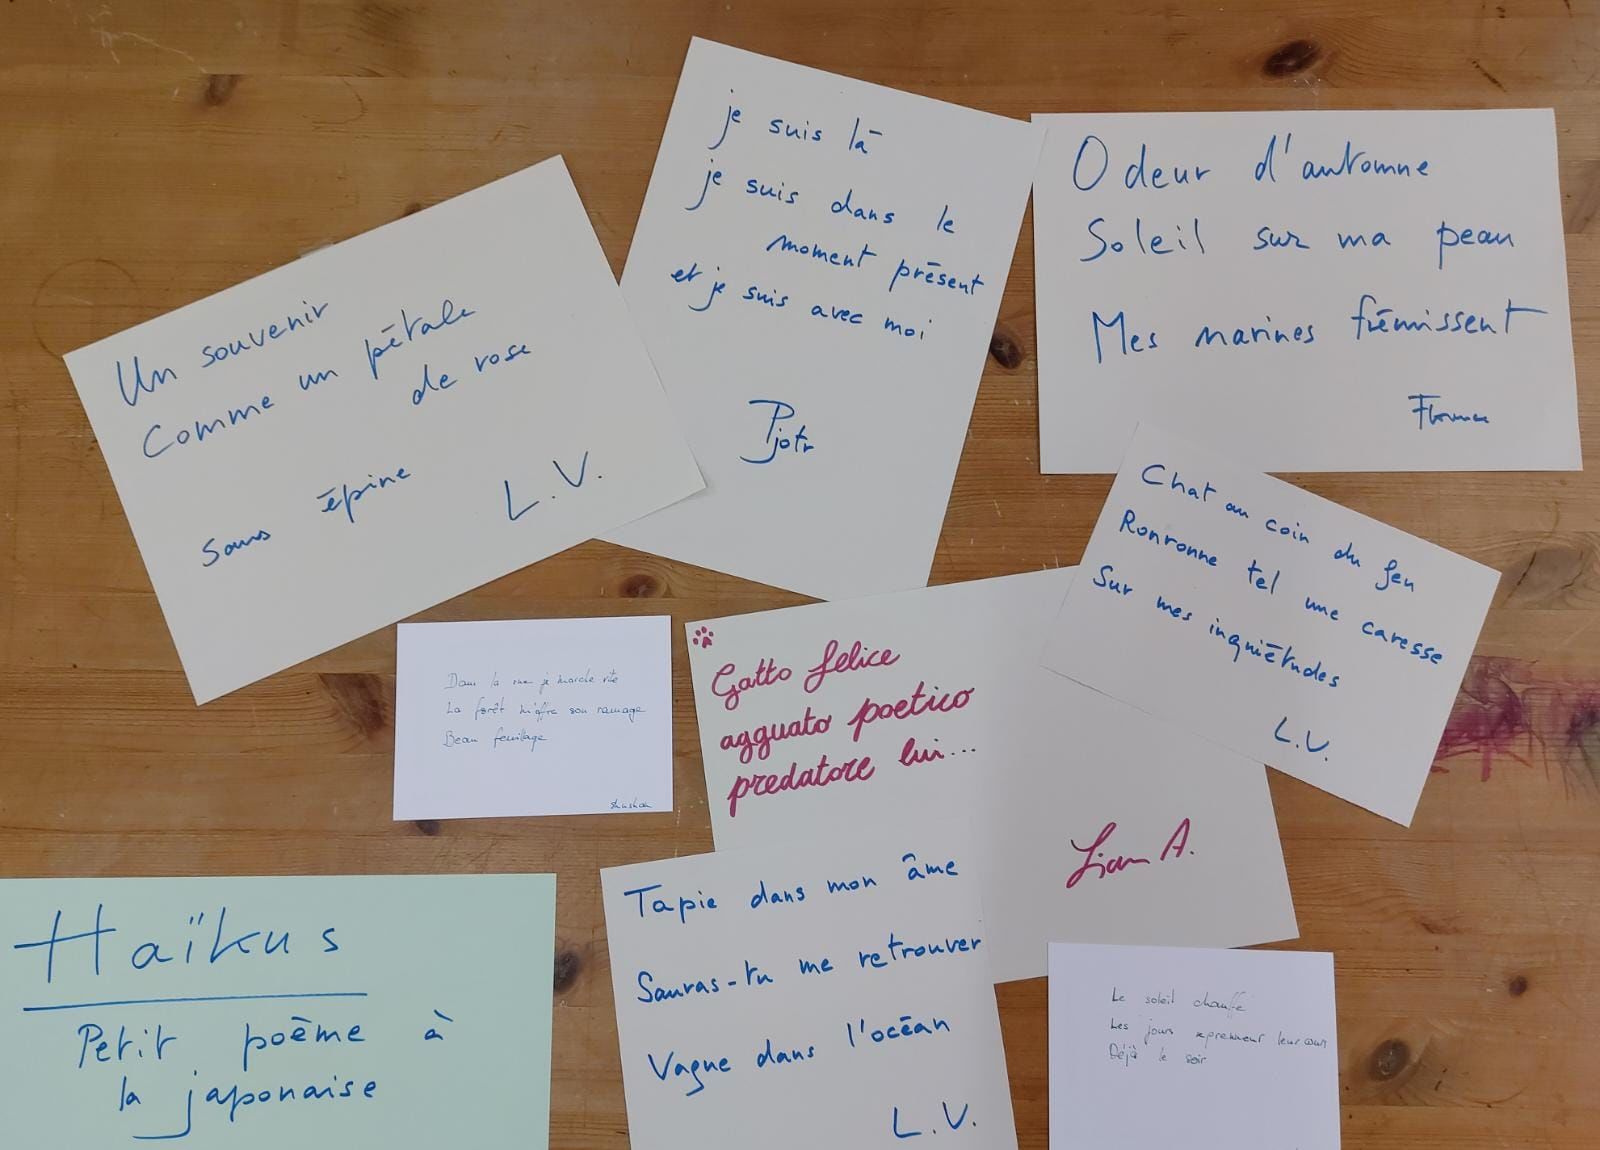 Un souvenir
Comme un pétale
de rose
Sans épine
L.V.
je suis là
je suis dans le
moment présent
et je suis avec moi
Pjotr
Odeur d'automne
Soleil sur ma peau
Mes narines frémissent
Chat au coin du feu
Ronronne tel une caresse
Sur mes inquiétudes
L.V.
Dans la rue je marche vite
La forêt m'offre son ramage
Beau feuillage
Gatto felice
agguato poetico
predatore lui...
A.
Haïkus
Petit poème à
la japonaise
Tapie dans mon âme
Sauras-tu me retrouver
Vague dans l'océan
L.V.
Le soleil chauffe
Les jours reprennent leur cours
Déjà le soir